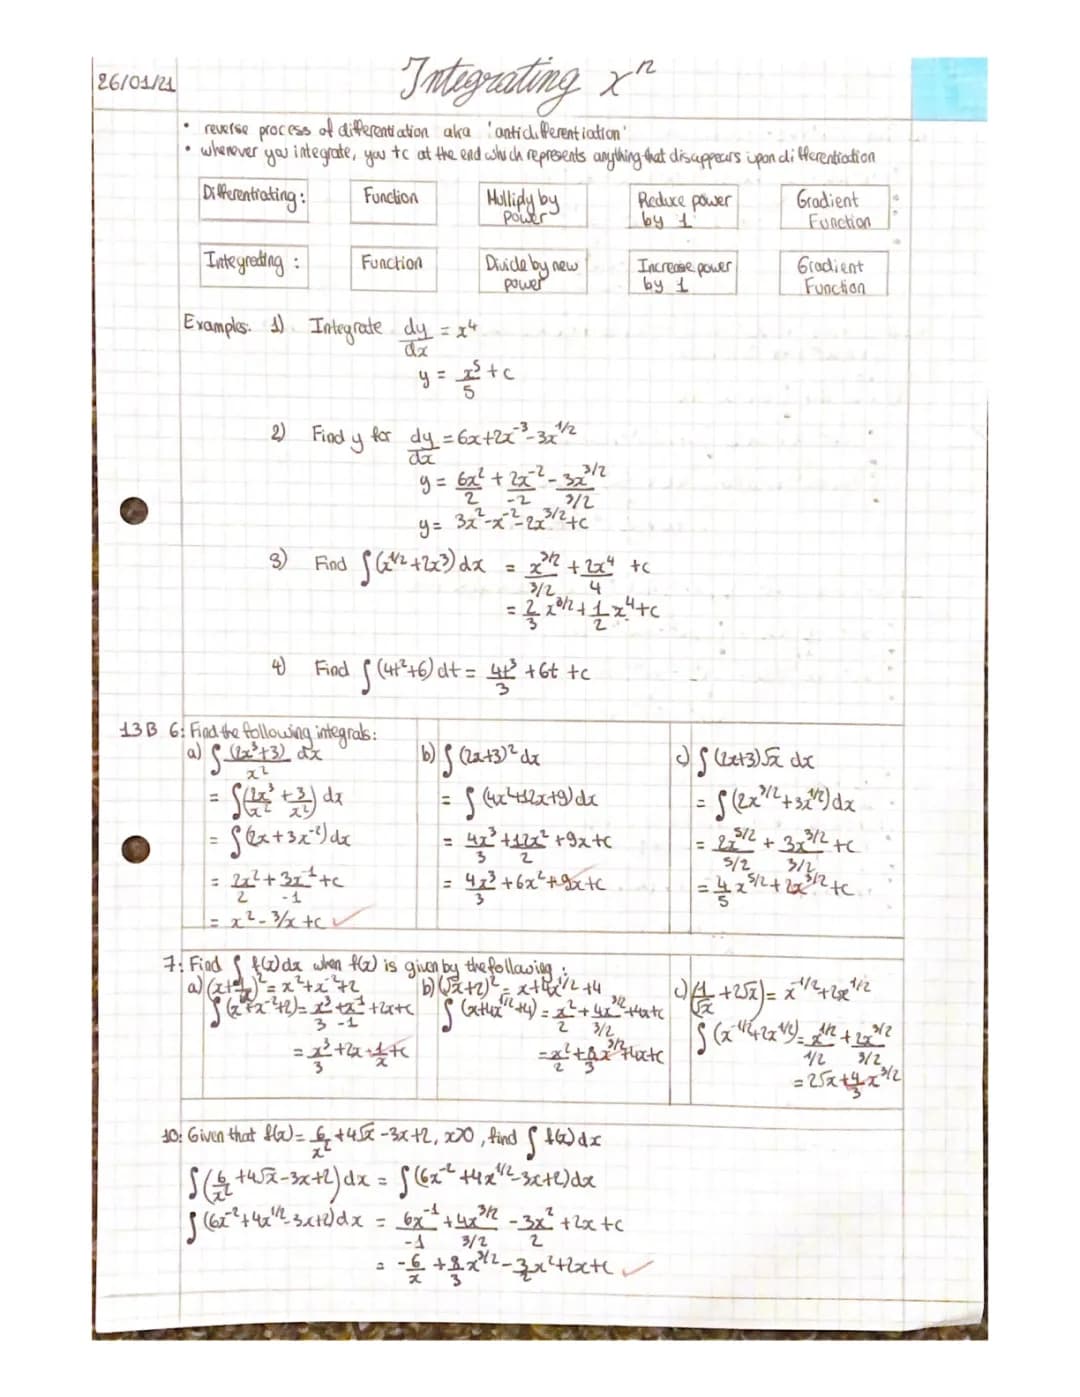 26/01/21
Integrating xⁿ
• reverse process of differentiation aka 'antidifferentiation'
• whenever you integrate, you +c at the end which represents anything that disappears upon differentiation
Differentiating: Function Multiply by power Reduce power by 1 Gradient Function
Integrating: Function Divide by new power Increase power by 1 Gradient Function
Examples. 1) Integrate dy/dx = x⁴
y = x⁵/5 + c
2) Find y for dy/dx = 6x+2x⁻³-3x^1/2
y = 6x²/2 + 2x⁻²/-2 - 3x^3/2/3/2
y = 3x²-x⁻²-2x^3/2+c
3) Find ∫(x^1/2+2x³)dx = x^3/2/3/2 + 2x⁴/4 +c
= 2/3 x^3/2 + 1/2 x⁴+c
4) Find ∫(4t²+6)dt = 4t³/3 +6t +c
13B 6: Find the following integrals:
a) ∫ (2x³+3)/x² dx
= ∫(2x³/x² + 3/x²) dx
= ∫(2x+3x⁻²)dx
= 2x²/2 + 3x⁻¹/-1 +c
= x² - 3/x +c ✓
b) ∫(2x+3)² dx
= ∫(4x²+12x+9)dx
= 4x³/3 + 12x²/2 +9x+c
= 4x³/3 +6x²+9x+c
c) ∫(2x+3)√x dx
= ∫(2x^3/2+3x^1/2)dx
= 2x^5/2/5/2 + 3x^3/2/3/2 +c
= 4/5 x^5/2 + 2x^3/2 +c
7: Find ∫f(x)dx when f(x) is given by the following:
a) (x+1/x)² = x²+x⁻²+2
∫(x²+x⁻²+2) = x³/3 + x⁻¹/-1 +2x+c
= x³/3 +2x - 1/x +c
b) (√x+2)² = x+4x^1/2+4
∫(x+4x^1/2+4) = x²/2 + 4x^3/2/3/2 +4x+c
= x²/2 + 8/3 x^3/2 +4x+c
c) (1/√x +2√x) = x^-1/2+2x^1/2
∫(x^-1/2+2x^1/2) = x^1/2/1/2 + 2x^3/2/3/2
= 2√x + 4/3 x^3/2
10: Given that f(x) = 6/x² +4√x -3x+2, x>0, find ∫f(x)dx
∫(6/x² +4√x-3x+2)dx = ∫(6x⁻²+4x^1/2-3x+2)dx
∫(6x⁻²+4x^1/2-3x+2)dx = 6x⁻¹/-1 + 4x^3/2/3/2 - 3x²/2 +2x+c
= -6/x + 8/3 x^3/2 - 3/2 x²+2x+c ✓